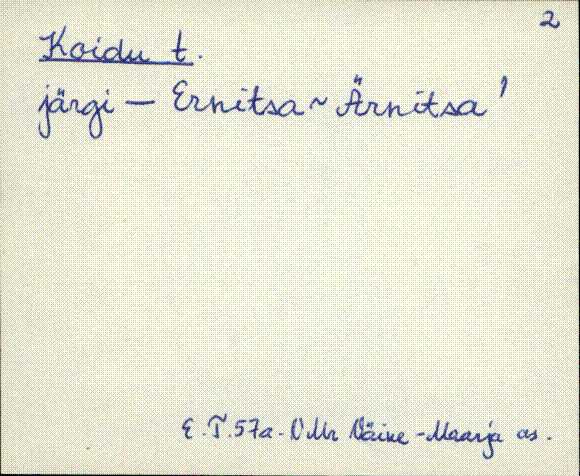 2
Koidu t.
järgi — Ernitsa ~ Ärnitsa'
E.T.57a. VMr Väike-Maarja as.